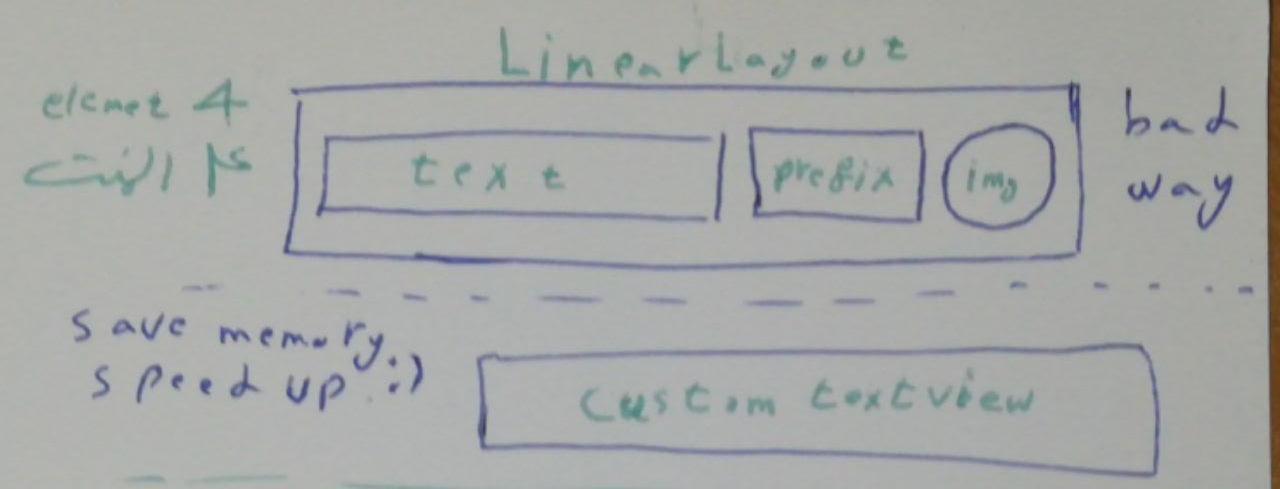 LinearLayout
elemet 4
۴ المنت
text
prefix
img
bad
way
save memory
speed up :)
custom textview